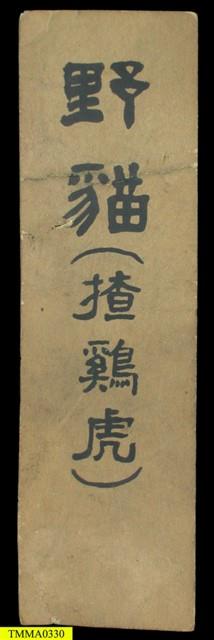 野貓(揸鷄虎)
TMMA0330